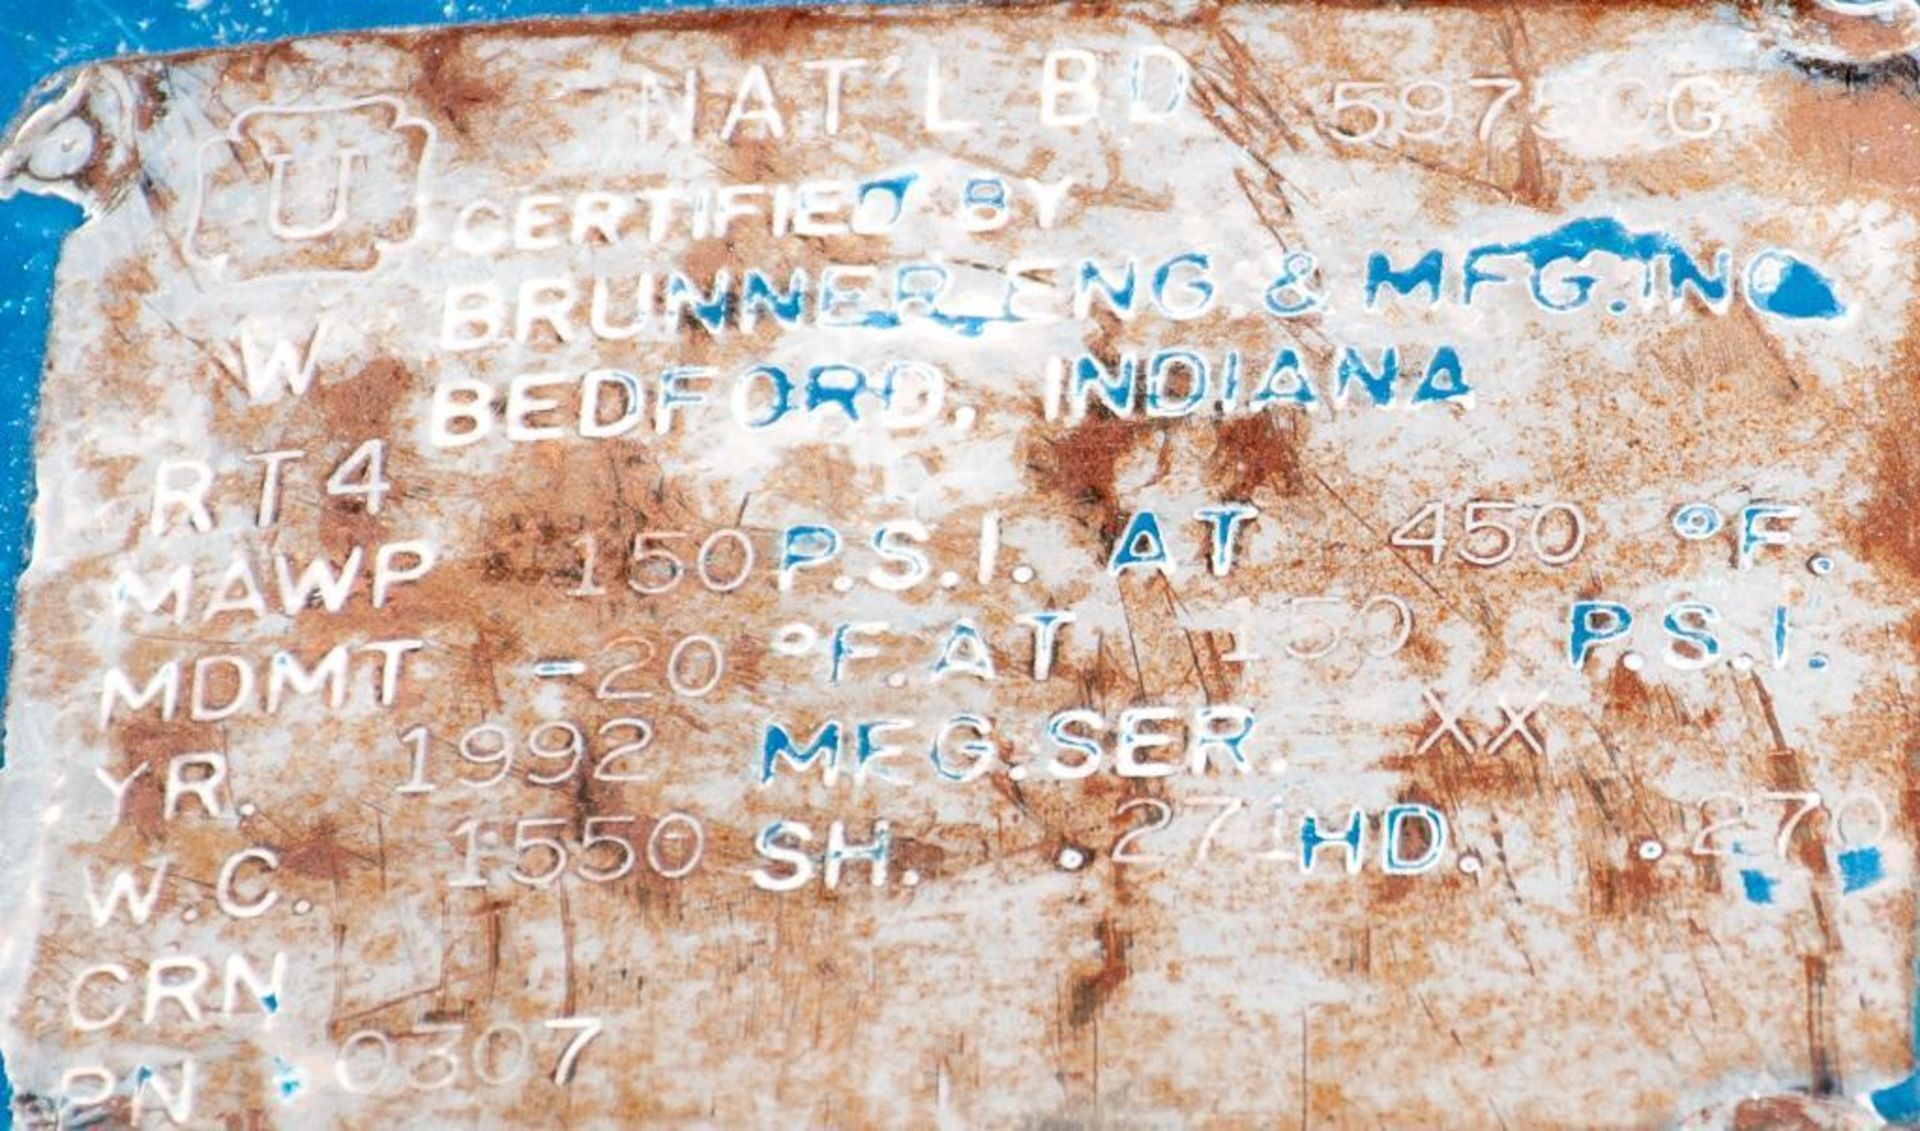 NAT'L BD 59750G
U CERTIFIED BY
BRUNNER ENG & MFG. INC.
W
BEDFORD, INDIANA
RT4
MAWP 150 P.S.I. AT 450 °F.
MDMT -20 °F. AT 150 P.S.I.
YR. 1992 MFG. SER. XX
W.C. 1550 SH. .271 HD. .270
CRN
PN 0307